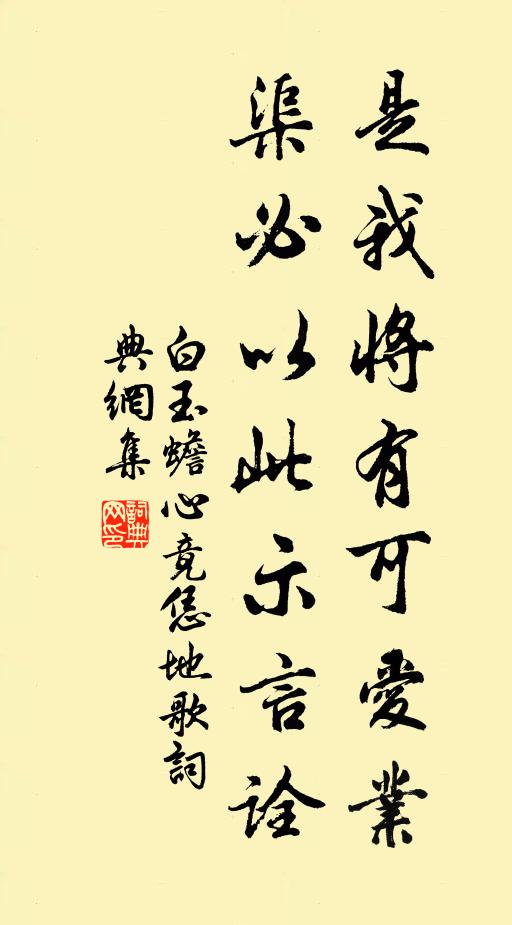 是我將有可愛業
渠必以此示言詮
白玉蟾心竟恁地歌詞
典網集
詞典网印